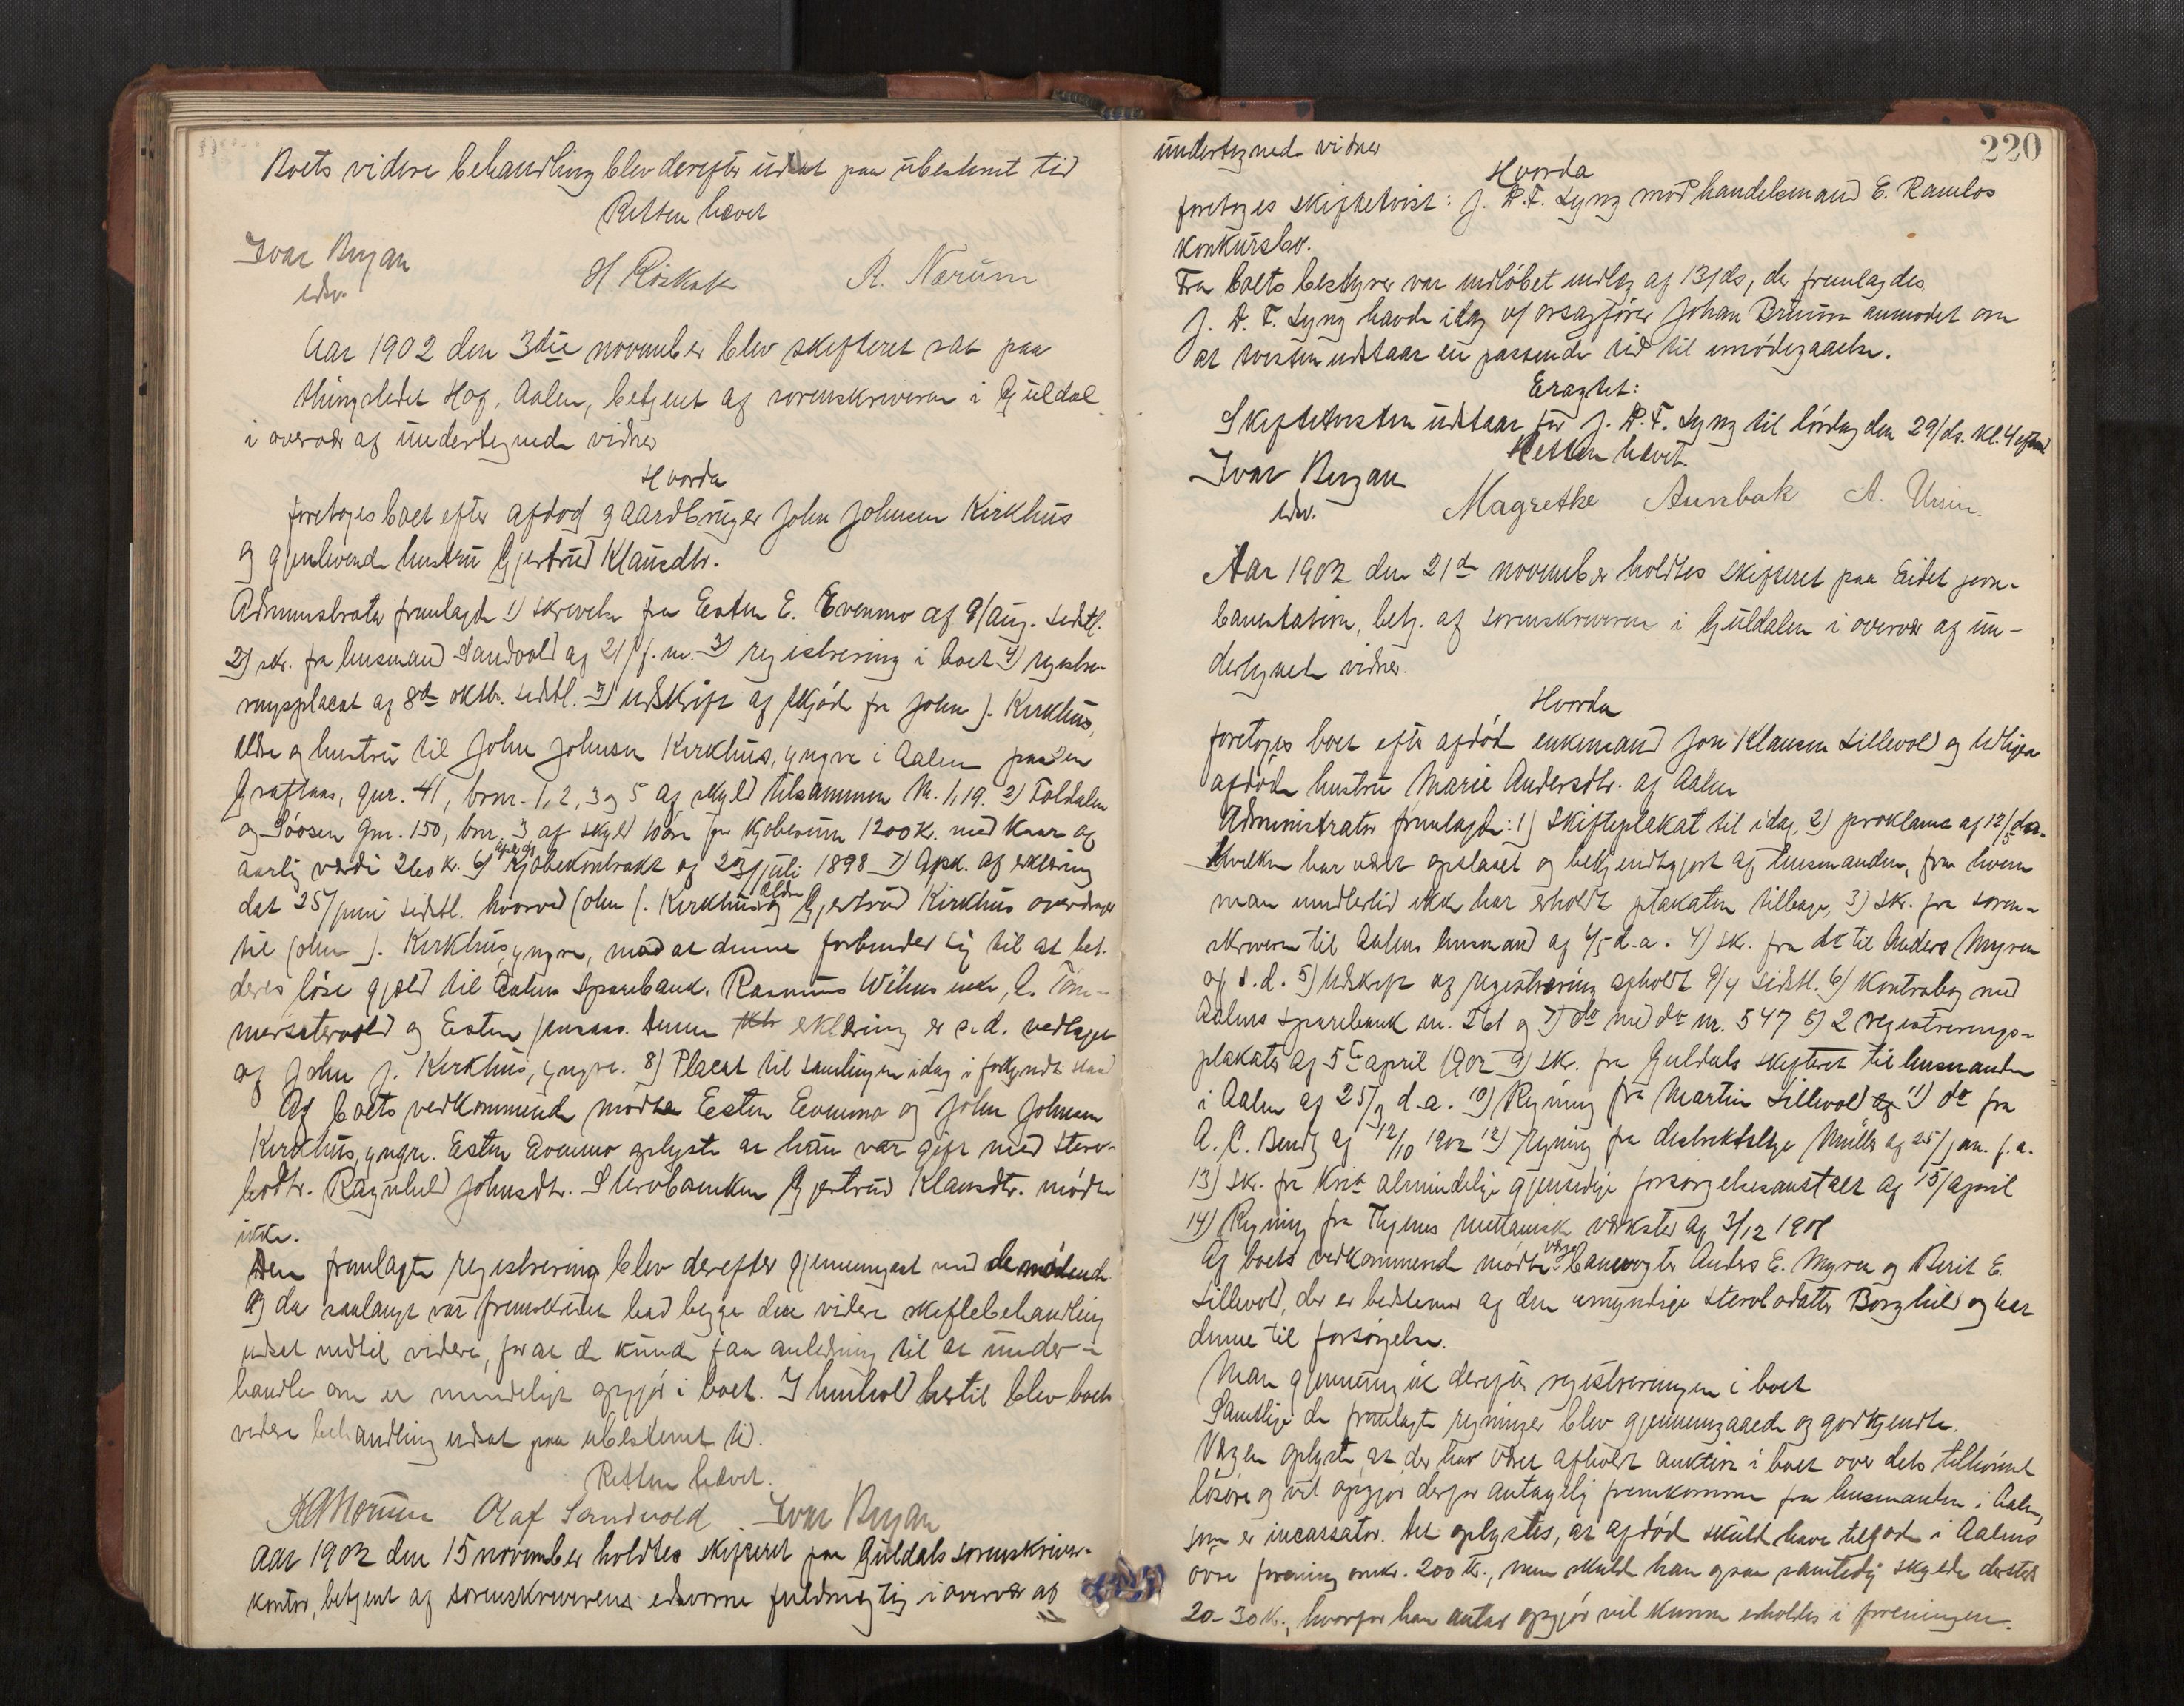 Boets videre behandling blev derefter udsat paa ubestemt tid
Retten hævet
Ivar Bugan
edsv.
H Röskak R. Narum
Aar 1902 den 3die november blev skifteret sat paa
thingstedet Hog, Aalen, betjent af sorenskriveren i Guldal
i overvær af undertegnede vidner
Hvorda
foretoges boet efter afdød gaardbruger John Johnsen Kirkhus
og gjenlevende hustru Gjertrud Klausdtr.
Administrator fremlagde 1) skrivelse fra Esten E. Evenmo af 9/aug. sidstl.
2) skr. fra lensmand Sandvold af 21/ f.m. 3) registrering i boet 4) registre-
ringsplacat af 8de oktbr. sidstl. 5) Udskrift af skjøde fra John J. Kirkhus,
ældre og hustru til John Johnsen Kirkhus, yngre i Aalen paa
Graftaas, gnr. 41, brnr. 1, 2, 3 og 5 af skyld tilsammen M. 1,19. 2) Foldalen
og Söosen gnr. 150, bnr. 3 af skyld 10 øre for kjøbesum 1200 K. med kaar af
aarlig værdi 260 K. 6) Kjøbekontrakt af 23/juli 1898 7) Gpk. af erklæring
dat 25/juni sidstl. hvorved John J. Kirkhus ældre og Gjertrud Kirkhus overdrager
til John J. Kirkhus, yngre, mod at denne forbinder sig til at bet.
deres løse gjæld til Aalens Sparebank, Rasmus Wihus enke, C. Töm-
mersetervold og Esten Jensaas. Denne erklæring er s.d. vedtaget
af John J. Kirkhus, yngre. 8) Placat til samlingen idag i forkyndt stand
Af boets vedkommende mødte Esten Evenmo og John Johnsen
Kirkhus, yngre. Esten Evenmo oplyste at han var gift med sterv-
bodtr. Ragnhild Johnsdtr. Stervboenken Gjertrud Klausdtr. mødte
ikke.
Den fremlagte registrering blev derefter gjennemgaat med de mødende
Og da saalangt var fremskredet bad begge den videre skiftebehandling
udsat indtil videre, for at de kunde faa anledning til at under-
handle om et mindeligt opgjør i boet. I henhold hertil blev boets
videre behandling udsat paa ubestemt tid.
Retten hævet.
Olaf Sandvold Ivar Bugan
Aar 1902 den 15 november holdtes skifteret paa Guldals sorenskriver-
kontor, betjent af sorenskriverens edsvorne fuldmægtig i overvær af
220
undertegnede vidner
Hvorda
foretoges skiftetvist: J. P. F. Lyng mod handelsmand E. Ramlos
konkursbo.
Fra boets bestyrer var indløbet indlæg af 13/ds, der fremlagdes
J. P. F. Lyng havde idag v/ orsagfører Johan Bruun anmodet om
at tvisten udstaar en passende tid til imødegaaelse.
Eragtet:
Skiftetvisten udstaar for J. P. F. Lyng til lørdag den 29/ds. kl. 4 efterm
Retten hævet.
Ivar Bugan
edsv.
Magrethe Aunbak A. Ursin.
Aar 1902 den 21de november holdtes skifteret paa Eidet jern-
banestation, betj. af sorenskriveren i Guldalen i overvær af un-
dertegnede vidner.
Hvorda
foretoges boet efter afdøde enkemand Jon Klausen Lillevold og tidligere
afdøde hustru Marie Andersdtr. af Aalen
Administrator fremlagde: 1) Skifteplakat til idag, 2) proklama af 12/5 d.a.
hvilken har været opslaaet og bekjendtgjort af lensmanden, fra hvem
man imidlertid ikke har erholdt plakaten tilbage, 3) skr. fra soren-
skriveren til Aalens lensmand af 4/5 d.a. 4) skr. fra do til Anders Myren
af s.d. 5) Udskrift af registrering afholdt 9/4 sidstl. 6) Kontrabog med
Aalens Sparebank nr. 261 og 7) do med do nr. 547 8) 2 registrerings-
plakater af 5te april 1902 9) skr. fra Guldals skifteret til lensmanden
i Aalen af 25/9 d.a. 10) Regning fra Martin Lillevold 11) do fra
A. C. Bendz af 12/10 1902 12) Regning fra distriktslæge Müller af 25/jan. f.a.
13) Skr. fra Krist. almindelige gjensidige forsørgelsesanstalt af 15/april
14) Regning fra Thynes mekanisk værksted af 3/12 1901
Af boets vedkommende mødte værge banevogter Anders E. Myren og Berit E.
Lillevold, der er bedstemor af den umyndige stervbodatter Borghild og har
denne til forsørgelse.
Man gjennemgik derefter registreringen i boet
Samtlige de fremlagte regninger blev gjennemgaaede og godkjendte.
Værgen oplyste, at der har været afholdt auktion i boet over dets tilhørende
løsøre og vil opgjør derfor antagelig fremkomme fra lensmanden i Aalen,
som er incassator. Det oplystes, at afdøde skulde have tilgode i Aalens
øvre forening omkr. 200 K., men skulde han ogsaa samtidig skylde dersteds
20-30 K., hvorfor han antar opgjør vil kunne erholdes i foreningen.